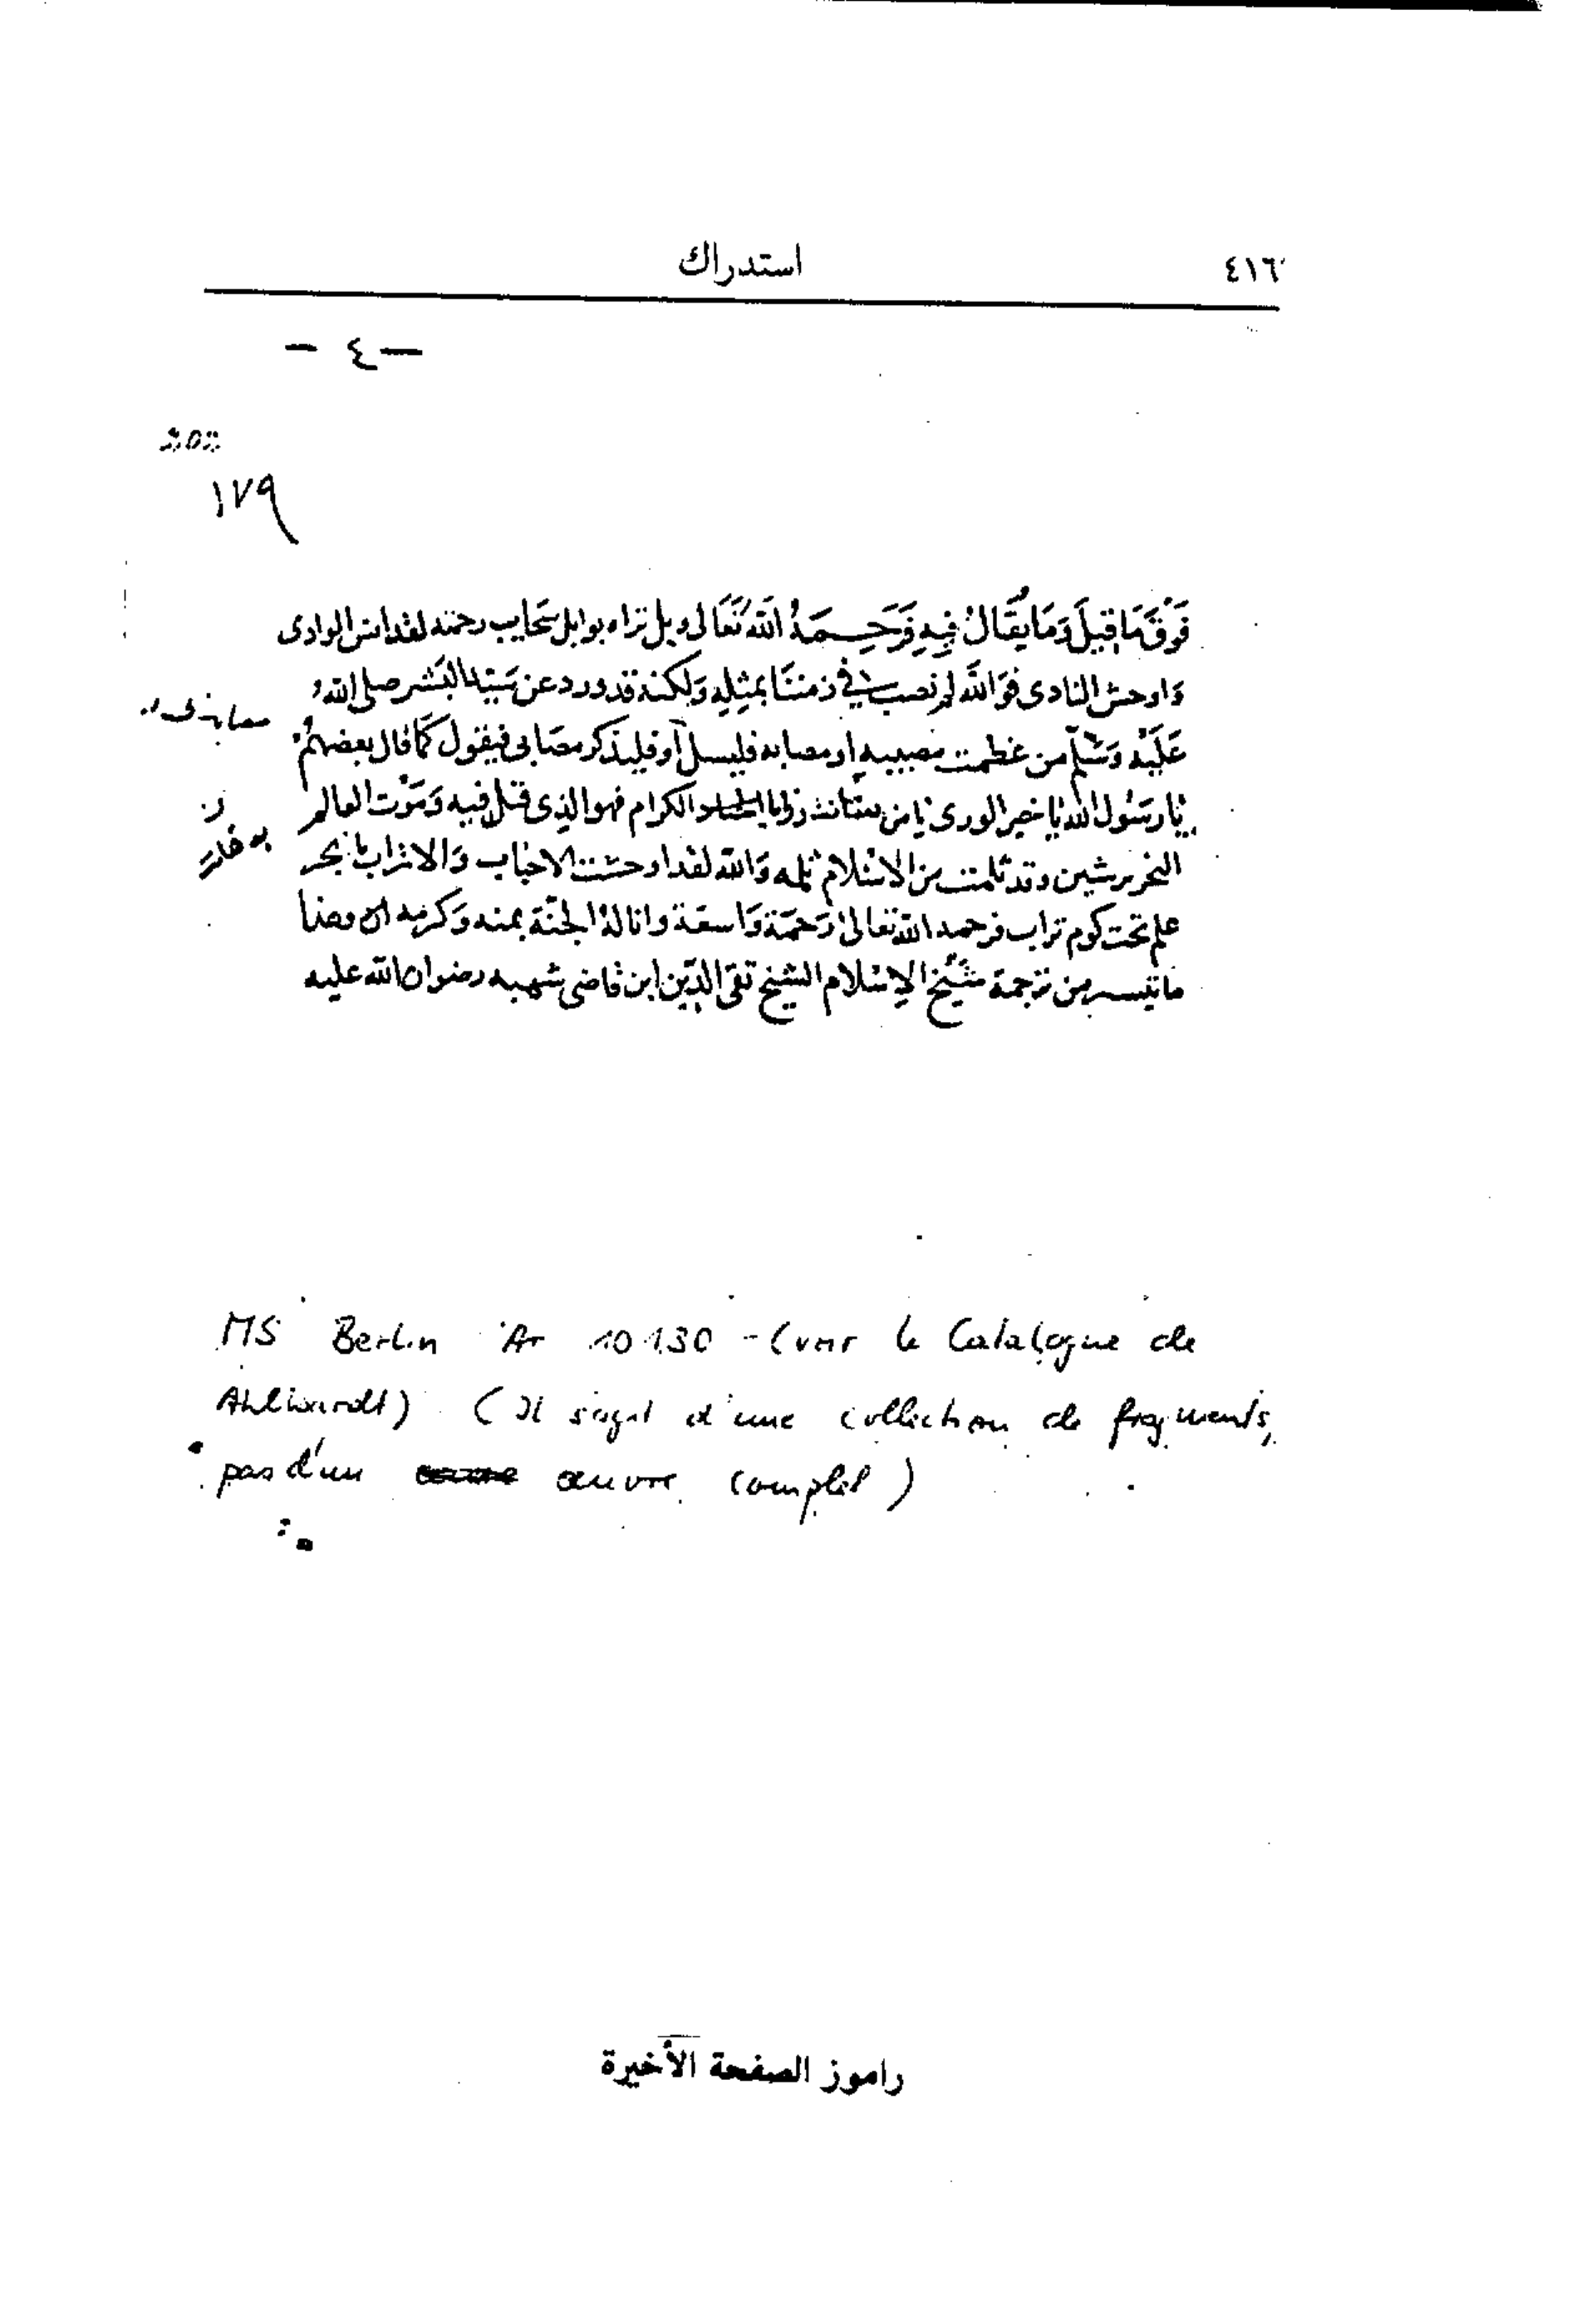 ٤١٦ استدراك
– ٤ –
١٧٩
فَوْقَ مَا قِيلَ وَمَا يُقَالُ فِيهِ فَرَحِمَهُ اللَّهُ تَعَالى وبل تراه بوابل سَحَايب رحمته لقد انس الوادى
وَاوحش النادى فَوَاللَّه لم نصب في زمننَا بمِثلِهِ وَلكنه قد ورد عن سَيّد البَشر صلى الله
عَلَيْه وَسَلّم من عظمت مصيبته او مصابه فليسل او فليذكر مصَابى فيقول كَمَا قال بعضهُم
يَا رسُول اللَّه يَا خير الورى يَا من الكرام فهو الذى قتل فيه وَمَوْت العالم
النحرير شين وقد ثلمت من الاسْلام ثلمه وَاللّه لقد اوحشت الاحبَاب وَالاتراب يَا بحر
علم تحت كوم تراب فرحمه اللَّه تعالى رَحمَة وَاسعَة وانالهُ الجنّة بمنه وَكرمه وهذا
مَا تيسر من ترجمة شَيْخ الإسْلام الشيخ تقى الدّين ابن قَاضى شهبه رضوان اللَّه عليه
MS Berlin Ar 10130 – (voir le Catalogue de
Ahlwardt) (Il s'agit d'une collection de fragments,
pas d'un œuvre complet)
راموز الصفحة الأخيرة